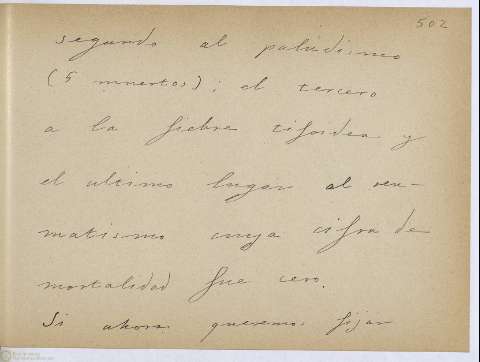 502
segundo al paludismo
(5 muertos); el tercero
a la fiebre tifoidea y
el ultimo lugar al reu-
matismo cuya cifra de
mortalidad fue cero.
Si ahora queremos fijar